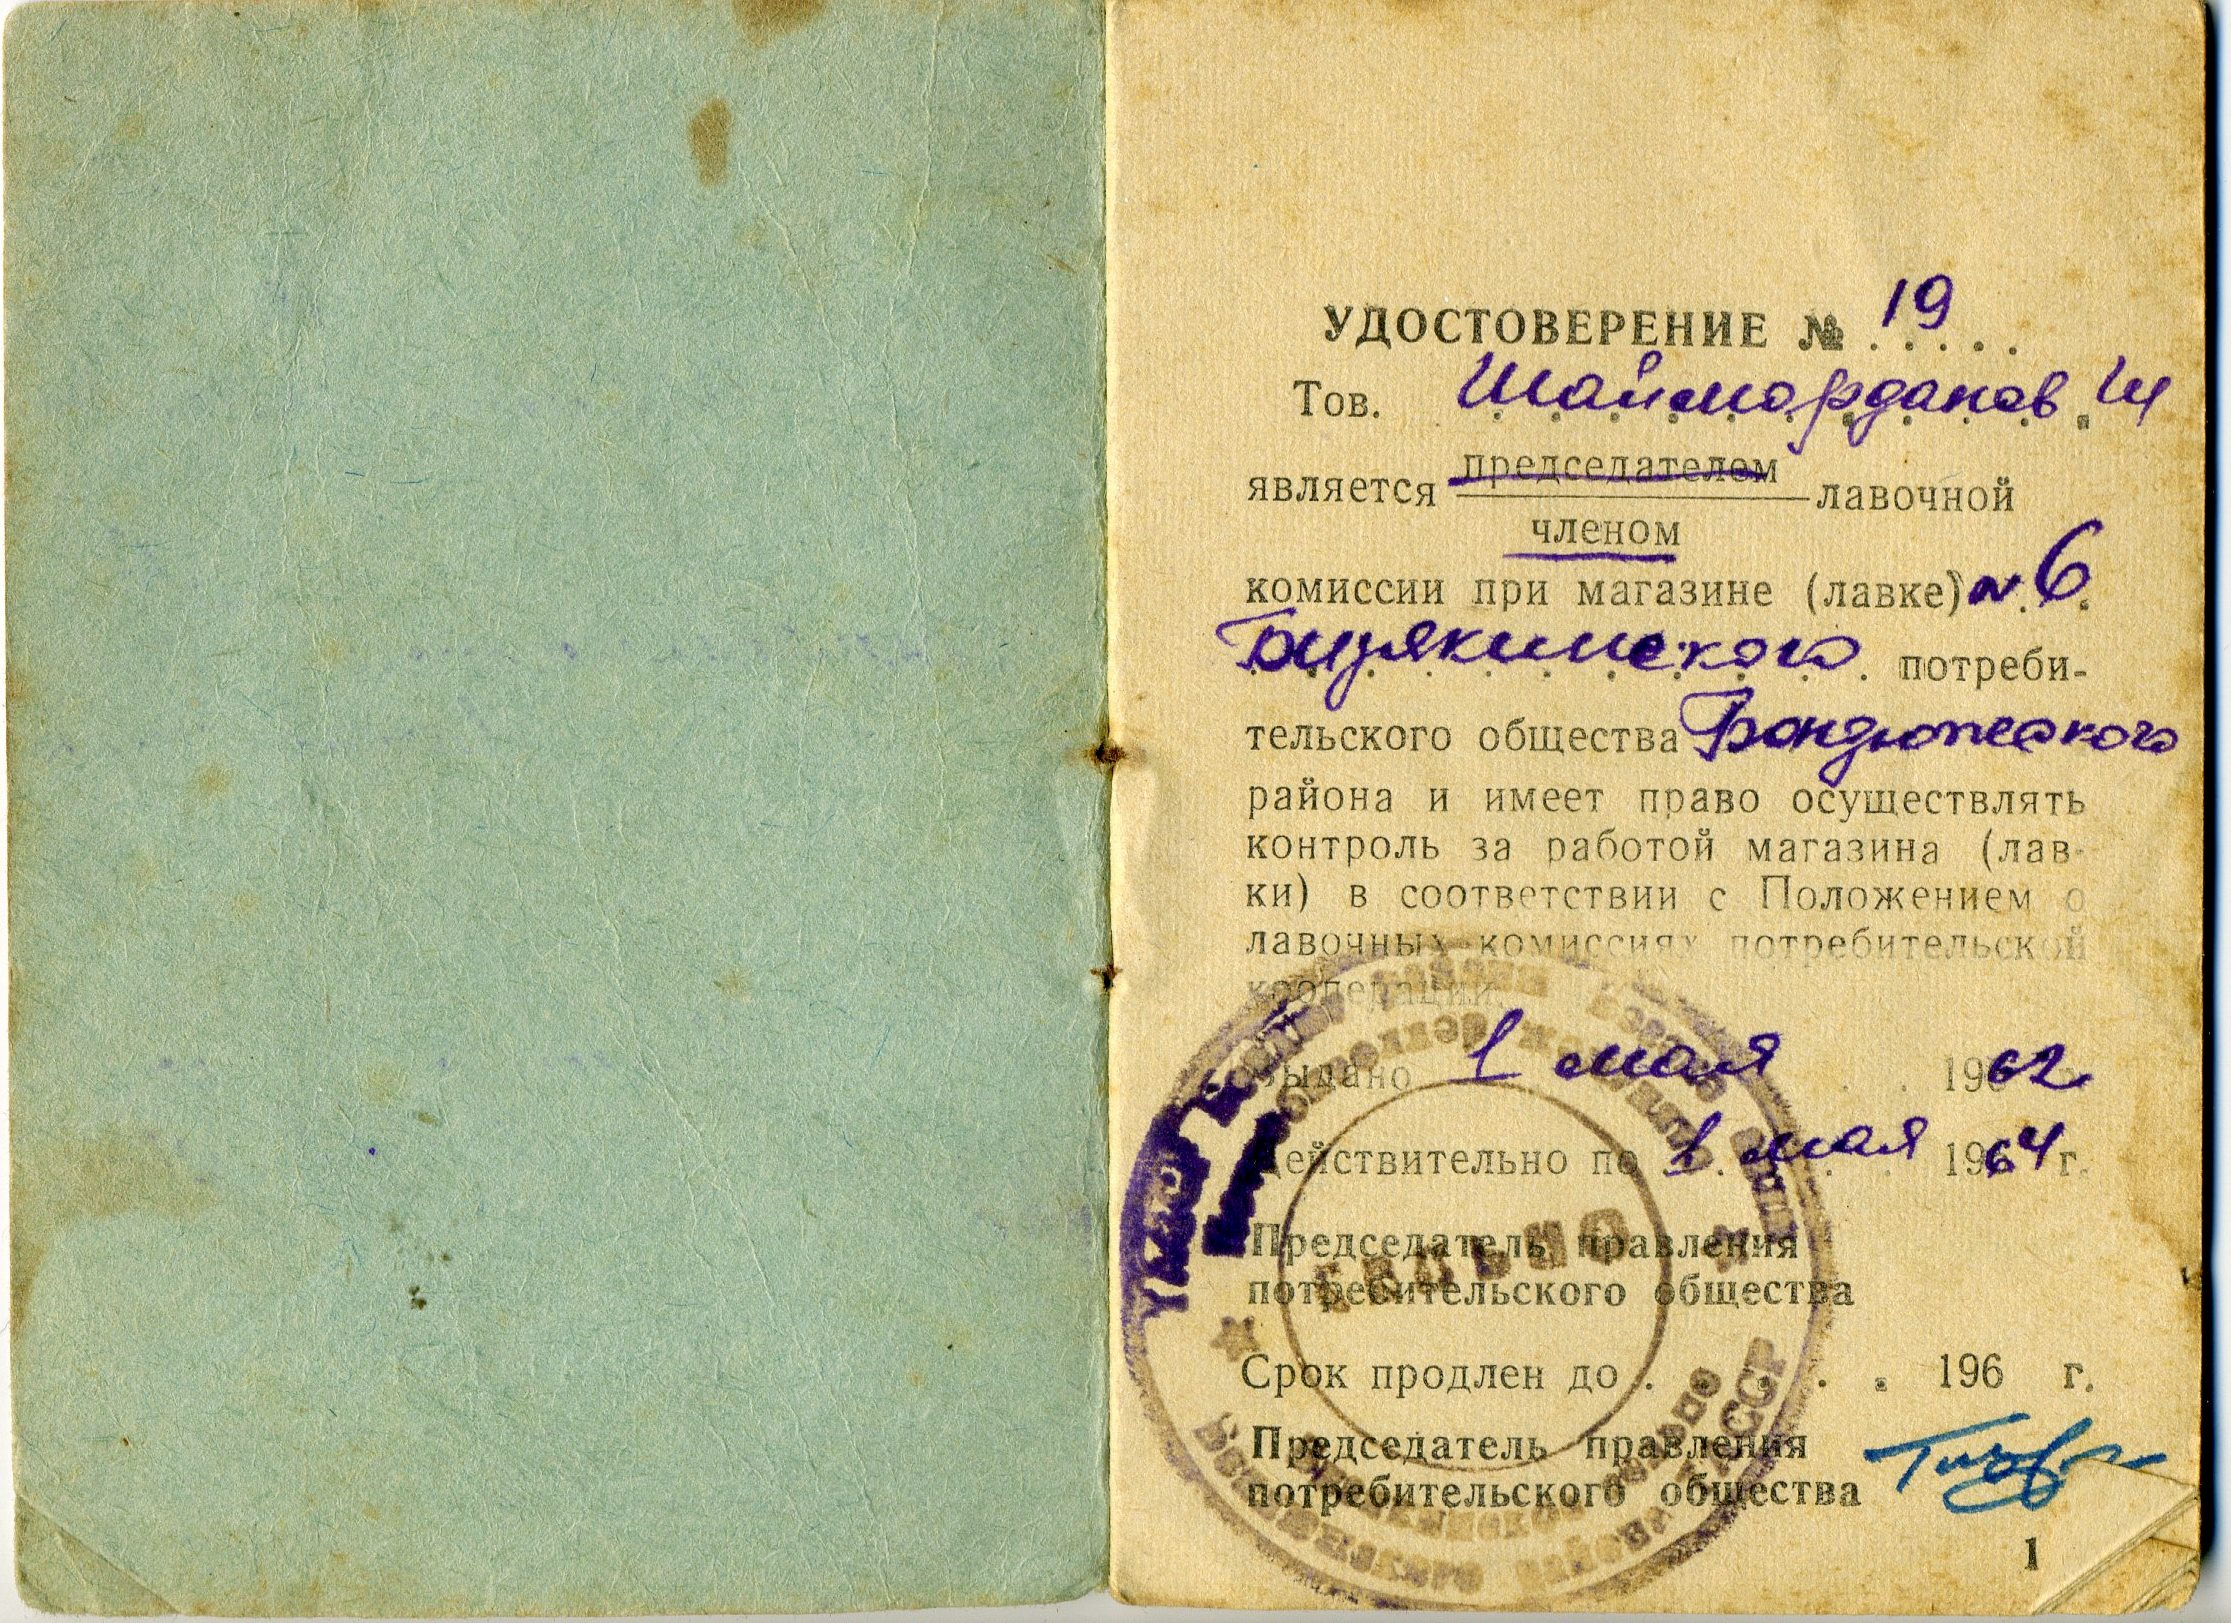 УДОСТОВЕРЕНИЕ № 19
Тов. Шаймарданов Ш
является председателем лавочной
членом
комиссии при магазине (лавке) N 6
Бизякинского потреби-
тельского общества Бондюжского
района и имеет право осуществлять
контроль за работой магазина (лав-
ки) в соответствии с Положением о
лавочных комиссиях потребительской
кооперации.
Выдано 1 мая 1962
Действительно по 1 мая 1964 г.
Председатель правления
потребительского общества
Срок продлен до . . . . . 196 г.
Председатель правления
потребительского общества
1